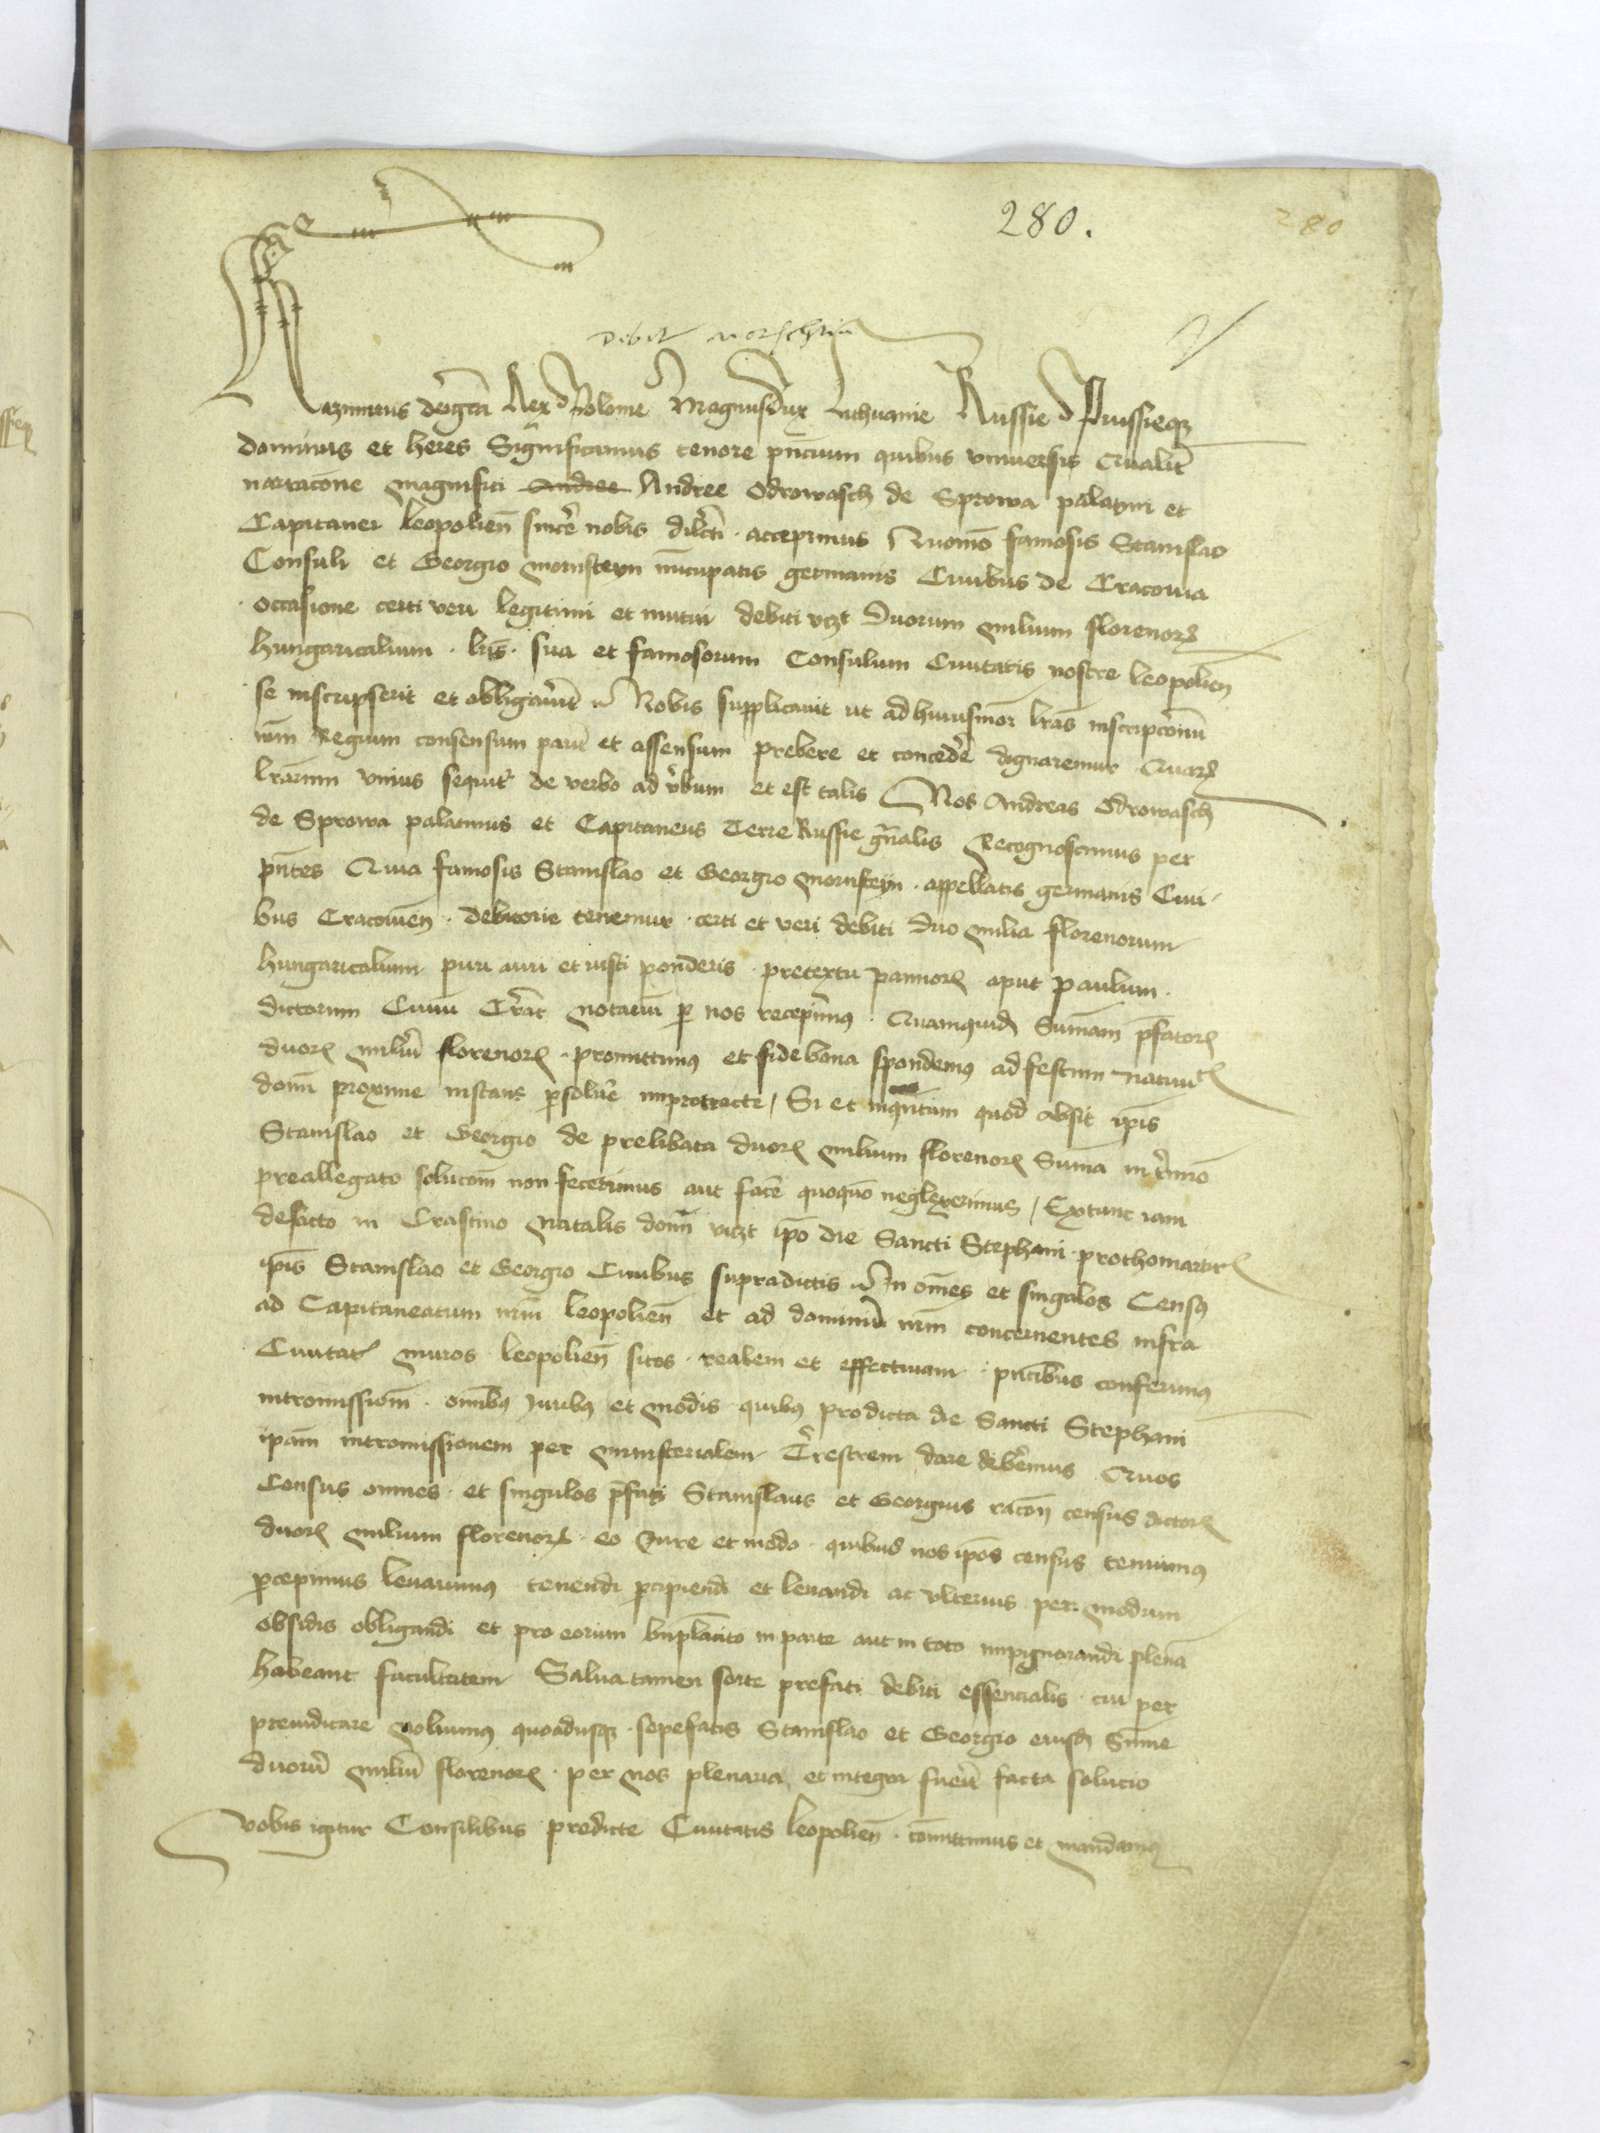 280.
280
debit morsthin
Kazimirus deigrā Rex Polonie Magnusdux Lithuanie Russie Prussieqꝫ
dominus et heres Significamus tenore pn̄cium quibus vniuersis Qualit̄
narracione magnifici Andree Andree Odrowasch de Sprowa palatini et
Capitanei leopolien̄ sincē nobis dilc̄ti accepimus Quomō famosis Stanislao
Consuli et Georgio mornsteyn nūcupatis germanis Ciuibus de Cracouia
occasione certi veri legitimi et mutui debiti vcꝫt duorum milium florenoꝝ
hungaricalium lr̄is sua et famosorum Consulum Ciuitatis nostre leopolien̄
se inscripserit et obligauit Nobis supplicauit ut ad huiusmoi lr̄as inscripcionū
nr̄m Regium consensum pariē et assensum prebere et concedē dignaremur Quaꝝ
lr̄arum vnius sequit̄ de verbo ad v̄bum et est talis Nos Andreas Odrowasch
de Sprowa palatinus et Capitaneus Terre Russie gn̄alis Recognoscimus per
pn̄tes Quia famosis Stanislao et Georgio mornsteyn appellatis germanis Ciui
bus Cracouien̄ debitorie tenemur certi et veri debiti duo milia florenorum
hungaricalium puri auri et iusti ponderis pretextu pannoꝝ aput paulum
dictorum Ciuiū Crac̄ notariū ꝑ nos receptimꝰ Quamquidē Summam p̄fatoꝝ
duoꝝ miliū florenoꝝ promittimꝰ et fide bona spondemꝰ ad festum natiuitꝭ
domī proxime instans ꝑsoluē improtracte Si et inqn̄tum quod absit ip̄is
Stanislao et Georgio de prelibata duoꝝ milium florenoꝝ Suma in t̄mino
preallegato solucōm non fecerimus aut facē quoquō neglexerimus Extunc iam
defacto in Crastino Natalis domī vicꝫt ip̄o die Sancti Stephani prothomartirꝭ
ip̄is Stanislao et Georgio Ciuibus supradictis In om̄es et singulos Censꝰ
ad Capitaneatum nr̄m leopolien̄ et ad dominiū nr̄m concernentes infra
Ciuitatꝭ muros leopolien̄ sitos realem et effectiuam pn̄tibus conferimꝰ
intromissiom̄ omībꝰ Juribꝰ et modis quibꝰ prodicta die Sancti Stephani
ip̄am intromissionem per ministerialem T̄restrem dare debemus Quos
Census omnes et singulos p̄fati Stanislaus et Georgius racōn census dictoꝝ
duoꝝ milium florenoꝝ eo Jure et modo quibus nos ip̄os census tenuimꝰ
ꝑcepimus leuauimꝰ tenendi ꝑcipiendi et leuandi ac vlterius per modum
obsidis obligandi et pro eorum bn̄placito in parte aut in toto impignorandi plenā
habeant facultatem Salua tamen sorte prefati debiti essencialis cui per
preiudicare noluimꝰ quoadusqꝫ sepefatis Stanislao et Georgio eiusdē Sume
duorū miliū florenoꝝ per nos plenaria et integra fuerit facta solucio
vobis igitur Consulibus predicte Ciuitatis leopolien̄ comittimus et mandamꝰ